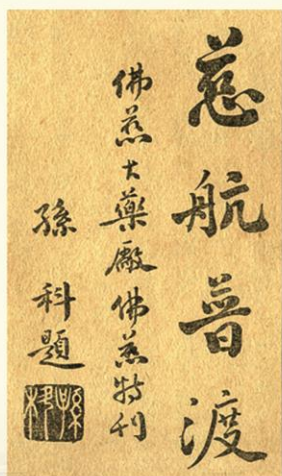 慈航普渡
佛慈大藥廠佛慈特刊
孫科題
孫科